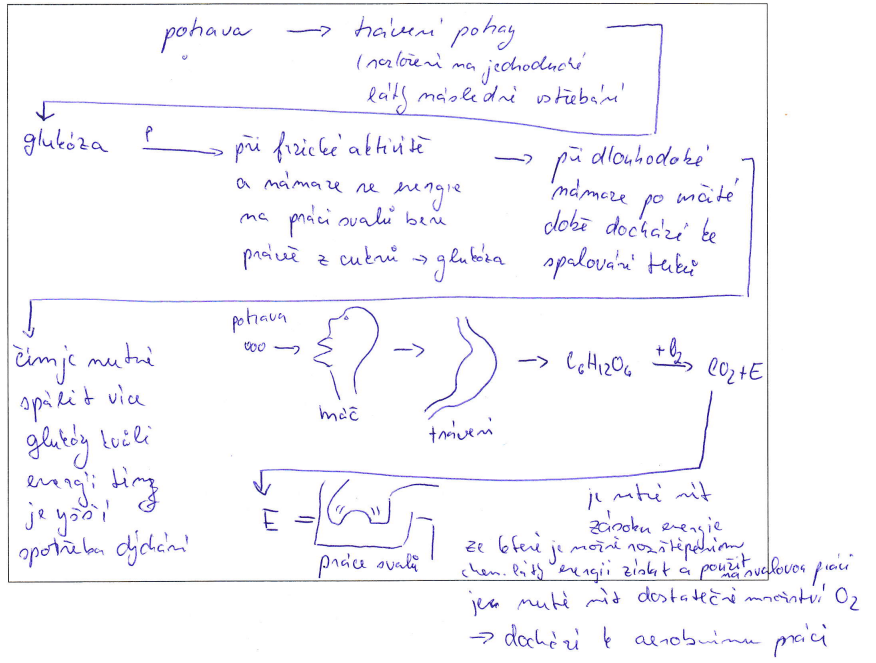 potrava → trávení potravy
(rozložení na jednoduché
látky následně vstřebání
glukóza → při fizické aktivitě
a námaze se energie
na práci svalů bere
právě z cukrů → glukóza
→ při dlouhodobé
námaze po určité
době dochází ke
spalování tuků
čím je nutné
spálit více
glukózy kvůli
energii tím
je vyšší
spotřeba dýchání
potrava
→ → → C6H12O6 +O2 → CO2+E
hráč
trávení
E =
práce svalů
je nutné mít
zásobu energie
ze které je možné rozštěpením
chem. látky energii získat a použít na svalovou práci
je nutné mít dostatečné množství O2
→ dochází k aerobnímu práci